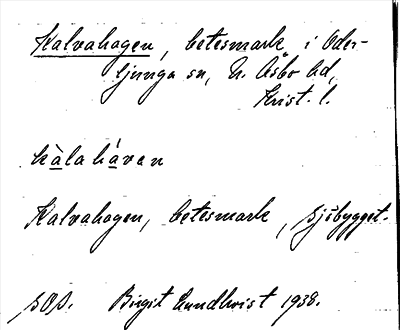 Kalvahagen, betesmark i Oder-
ljunga sn, N. Åsbo hd,
Krist. l.
kàlaháven
Kalvahagen, betesmark,
Birgit Lundkvist 1938.